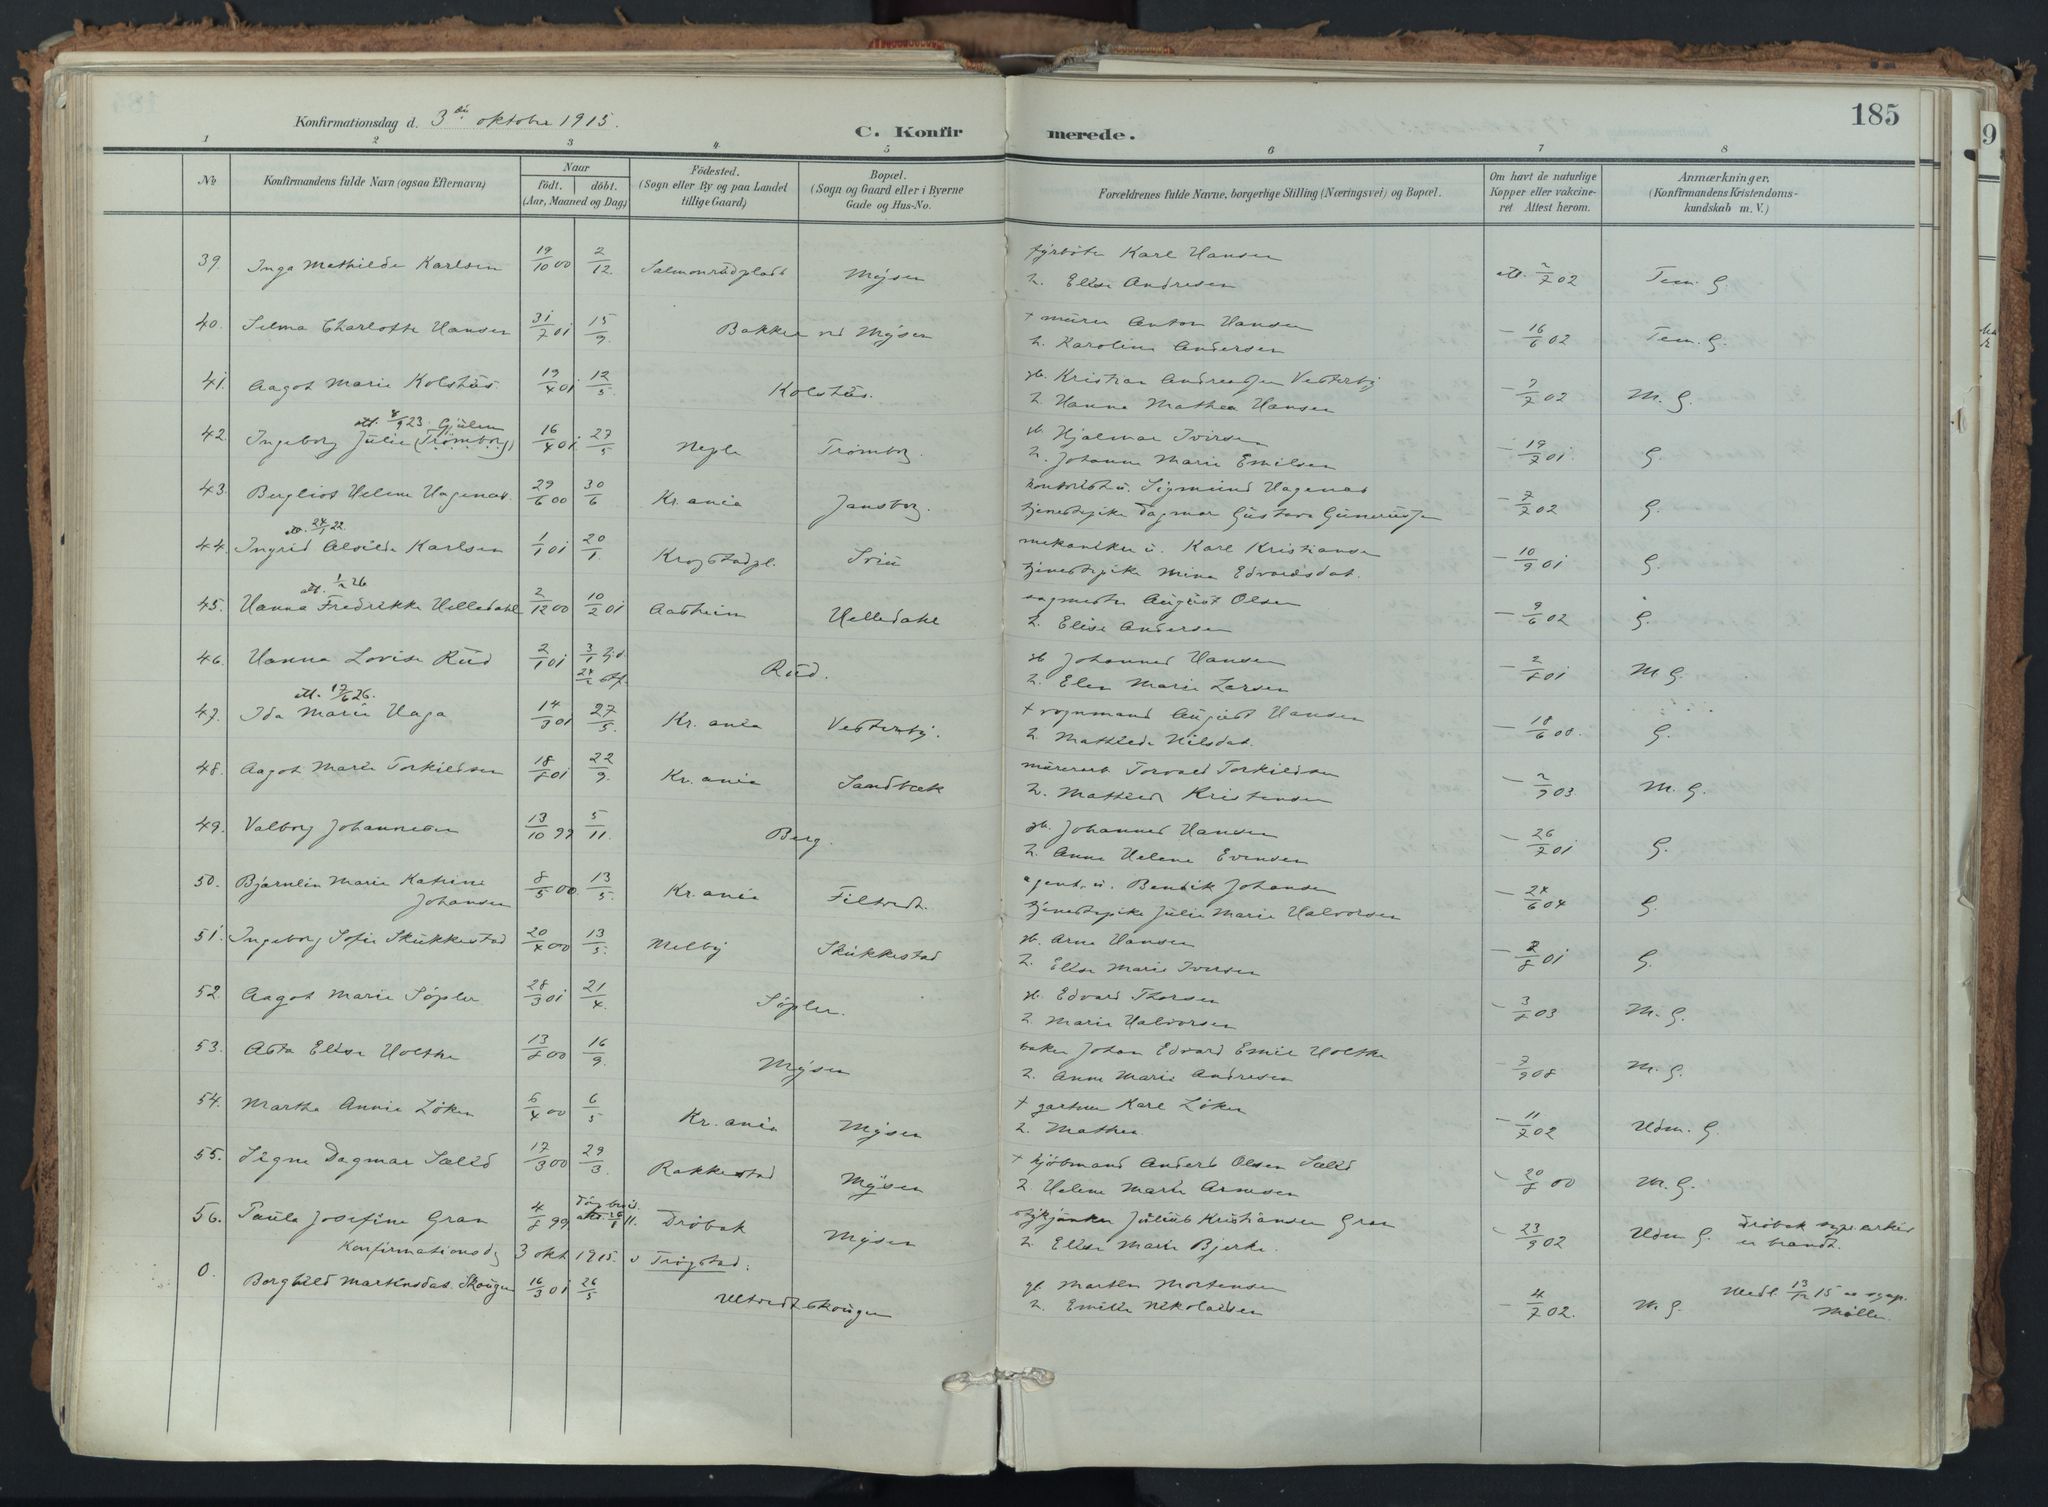 185
Konfirmationsdag d. 3die oktober 1915.
C. Konfirmerede.
1 2 3 4 5 6 7 8
No
Konfirmandens fulde Navn (ogsaa Efternavn)
Naar
födt. döbt.
(Aar, Maaned og Dag)
Födested.
(Sogn eller By og paa Landet tillige Gaard)
Bopæl.
(Sogn og Gaard eller i Byerne Gade og Hus-No.
Forældrenes fulde Navne, borgerlige Stilling (Næringsvei) og Bopæl.
Om havt de naturlige Kopper eller vakcineret Attest herom.
Anmærkninger.
(Konfirmandens Kristendomskundskab m. V.)
39. Inga Mathilde Karlsen 19/10 00 2/12. Mysen Karl Hansen
h. Elise Andresen att. 2/7 02 Tem. G
40. Selma Charlotte Hansen 31/7 01 15/9. Bakker ved Mysen + murer Anton Hansen
h. Karoline Andersen – 16/6 02 Tem. G.
41. Aagot Marie Kolstas 19/4 01 12/5. Kolstas. gb. Kristian Andreassen Vesterby
h. Hanna Mathea Hansen – 7/7 02 M. G.
att. 8/9 23. Gjulem
42. Ingeborg Julie (Trömborg) 16/4 01 27/5 Trömborg. gb. Hjalmar Iversen
h. Johanne Marie Emilsen – 19/7 01. G.
43. Bergliot Helene Hagenas. 29/6 00 30/6 Kr.ania Jansborg. Sigmund Hagenas
tjenestepike Dagmar Gustava – 7/7 02 G.
44. Ingrid Alvilde Karlsen 1/1 01 20/1. Krogstadpl. mekaniker u. Karl Kristiansen
tjenestepike Mina Edvardsdat. – 10/9 01 G.
att. 1/2 26
45. Hanna Fredrikke Helledahl 2/12 00 10/2 01 Aasheim Helledahl sagmester August Olsen
h. Elise Andersen – 9/6 02 G.
46. Hanna Lovise Rud 2/1 01 3/1 hjd. Rud. gb. Johannes Hansen
h. Elen Marie Larsen M G.
att. 17/6 26.
47. Ida Marie Haga 27/5. Kr.ania Vesterby. + vognmand August Hansen
h. Mathilde Nilsdat. – 18/6 00. G.
48. Aagot Marie Torkildsen 18/8 01 22/9. Kr.ania Sandbæk murerarb. Torvald Torkildsen
h. Mathilde Kristensen M. G.
49. Valborg Johannesen 13/10 99 5/11. Berg. gb. Johannes Hansen
h. Anne Helene Evensen – 26/7 01 G.
50. Bjarnlin Marie Katrine
Johansen 8/5 00 13/5. Kr.ania Filtvedt. agent. u. Bendik Johansen
tjenestepike Julie Marie Halvorsen – 24/6 04 G.
51. Ingeborg Sofie Skukkestad 20/4 00 13/5. Melby Skukkestad gb. Arne Hansen
h. Elise Marie Iversen 01 G.
52. Aagot Marie Söpler 28/3 01 21/4. Söpler. gb. Edvard Thorsen
h. Marie Halvorsen – 3/8 03 M. G.
53. Asta Elise Holthe 13/8 00 16/9. Mysen baker Johan Edvard Emil Holthe
h. Anne Marie Andresen – 7/9 08 M. G.
54. Martha Annie Löken 6/4 00 6/5 Kr.ania Mysen + gartner Karl Löken
h. Mathea – 11/7 02 Udm. G.
55. Signe Dagmar Sælid 17/3 00 29/3. Rakkestad Mysen + kjöbmand Anders Olsen Sælid
h. Helene Marie Arnesen – 20/8 00 M. G.
56. Paula Josefine Gran 4/8 99 Dröbak Mysen Julius Kristiansen Gran
h. Elise Marie Bjerke. – 23/9 02 Udm G. Dröbak er brandt.
Konfirmationsdg 3 okt. 1915. i Trögstad:
0. Borghild Martinsdat. Skougen 16/3 01 26/5 gb. Martin Mortensen
h. Emilie Nikolaisen – 4/7 02. M G. Medl. 13/12 15 Møller.